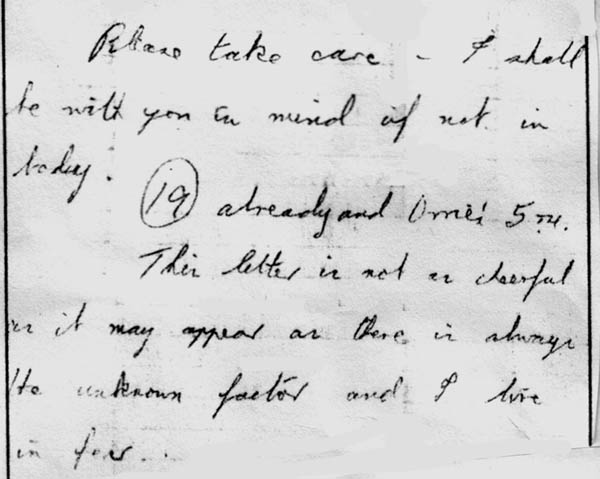 Please take care - I shall
be with you in mind if not in
body.
(19) already and Orrie's 5 
This letter is not as cheerful
as it may appear as there is always
the unknown factor and I live
in fear...